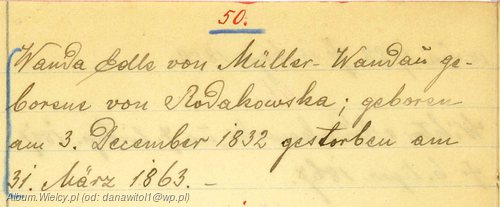 50.
Wanda Edle von Müller-Wandaŭ ge-
borene von Rodakowska; geboren
am 3. December 1832 gestorben am
31. März 1863. –
Album.Wielcy.pl (od: danawitol1@wp.pl)